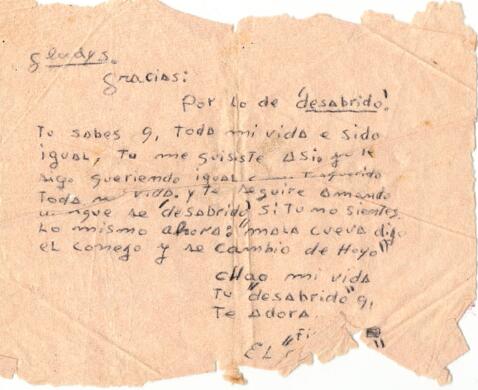 Gladys.
Gracias:
Por lo de "desabrido".
Tu sabes q, toda mi vida e sido
igual, Tu me quisiste asi, yo te
sigo queriendo igual querido
Toda mi vida. y te seguire amando
aunque se "desabrido" si tu no sientes
Lo mismo ahora: "mala cueva dijo
el conejo y se cambio de Hoyo"
chao mi vida
Tu "desabrido" q,
Te adora.
EL